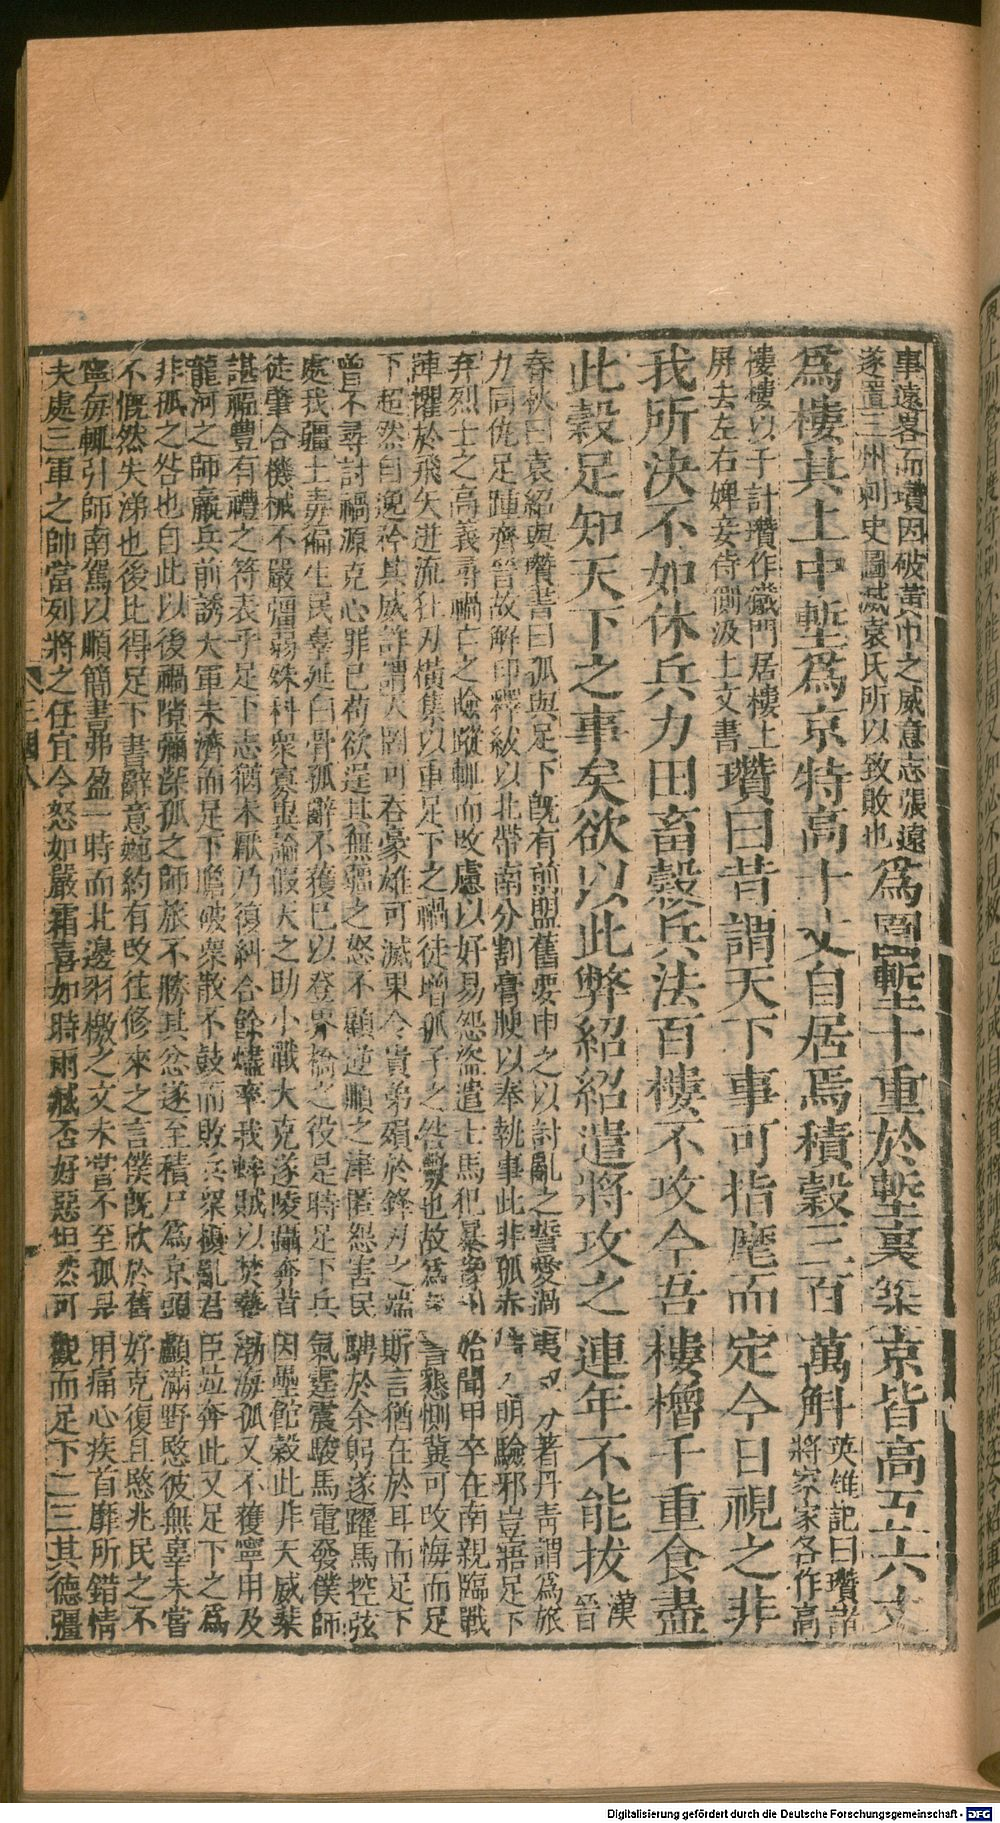 事遠畧而瓚因破黃巾之威意志張遠
遂置三州刺史圖滅袁氏所以致敗也
爲圍塹十重於塹裏築京皆高五六丈
爲樓其上中塹爲京特高十丈自居焉積穀三百萬斛
英雄記曰瓚諸
將家家各作高
樓樓以千計瓚作鐵門居樓上
屏去左右婢妾侍側汲上文書
瓚曰昔謂天下事可指麾而定今日視之非
我所決不如休兵力田畜穀兵法百樓不攻今吾樓櫓千重食盡
此穀足知天下之事矣欲以此弊紹紹遣將攻之連年不能拔
漢
晉
春秋曰袁紹與瓚書曰孤與足下旣有前盟舊要申之以討亂之誓愛過夷分著丹靑謂爲旅
力同仇足踵齊晉故解印釋紱以北帶南分割膏腴以奉執事此非孤赤情明驗邪豈寤足下
弃烈士之高義尋禍亡之險蹤輙而改慮以好易怨盜遣士馬犯暴豫州始聞甲卒在南親臨戰
陣懼於飛矢迸流狂刃橫集以重足下之禍徒增孤子之咎釁也故爲書言懇惻冀可改悔而足
下超然自逸矜其威詐謂天罔可吞豪雄可滅果令貴弟殞於鋒刃之端斯言猶在於耳而足下
曾不尋討禍源克心罪己苟欲逞其無疆之怒不顧逆順之津匿怨害民騁於余躬遂躍馬控弦
處我疆土毒徧生民辜延白骨孤辭不獲已以登界橋之役是時足下兵氣霆震駿馬電發僕師
徒肇合機械不嚴彊弱殊科衆寡異論假天之助小戰大克遂陵躡奔背因壘館穀此非天威棐
諶福豐有禮之符表乎足下志猶未厭乃復糾合餘燼率我蛑賊以焚爇渤海孤又不獲寧用及
龍河之師羸兵前誘大軍未濟而足下膽破衆散不鼓而敗兵衆擾亂君臣並奔此又足下之爲
非孤之咎也自此以後禍隙彌深孤之師旅不勝其忿遂至積尸爲京頭顱滿野愍彼無辜未嘗
不慨然失涕也後比得足下書辭意婉約有改往修來之言僕旣欣於舊好克復且愍兆民之不
寧每輙引師南駕以順簡書弗盈一時而北邊羽檄之文未嘗不至孤是用痛心疾首靡所錯情
夫處三軍之帥當列將之任宜令怒如嚴霜喜如時雨臧否好惡坦然可觀而足下二三其德彊
三國八
Digitalisierung gefördert durch die Deutsche Forschungsgemeinschaft - DFG